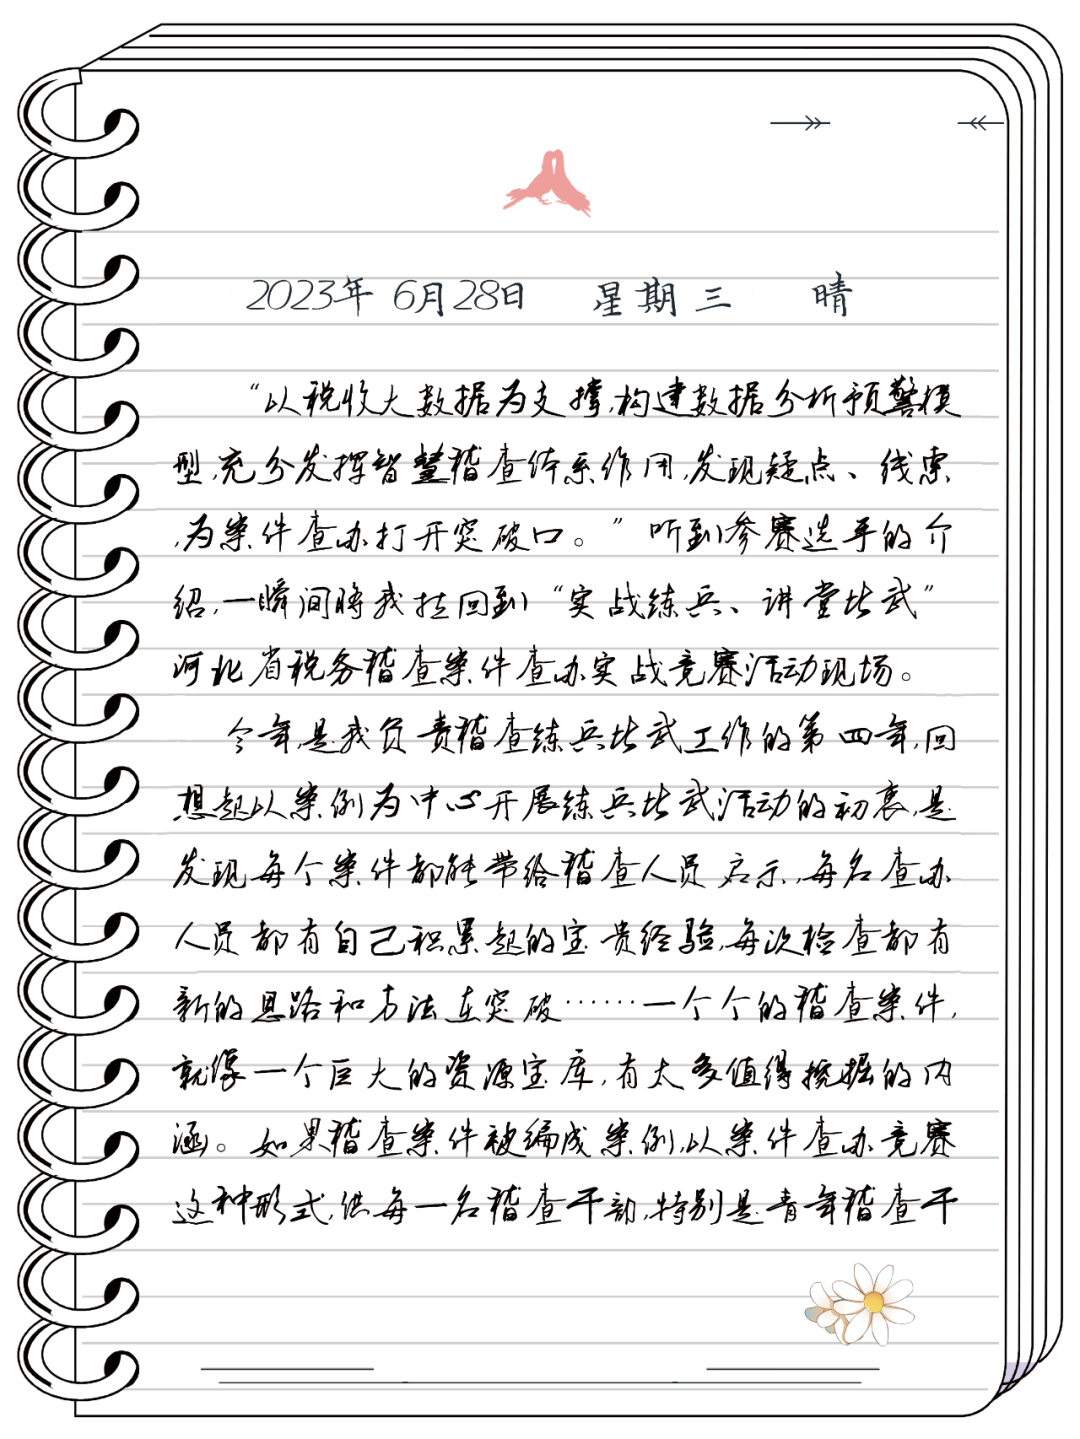 2023年 6月28日 星期三 晴
“以税收大数据为支撑,构建数据分析预警模
型,充分发挥智慧稽查体系作用,发现疑点、线索
,为案件查办打开突破口。”听到参赛选手的介
绍,一瞬间将我拉回到“实战练兵、讲堂比武”
河北省税务稽查案件查办实战竞赛活动现场。
今年,是我负责稽查练兵比武工作的第四年,回
想起以案例为中心开展练兵比武活动的初衷,是
发现每个案件都能带给稽查人员启示,每名查办
人员都有自己积累起的宝贵经验,每次检查都有
新的思路和方法在突破……一个个的稽查案件,
就像一个巨大的资源宝库,有太多值得挖掘的内
涵。如果稽查案件被编成案例,以案件查办竞赛
这种形式,供每一名稽查干部,特别是青年稽查干